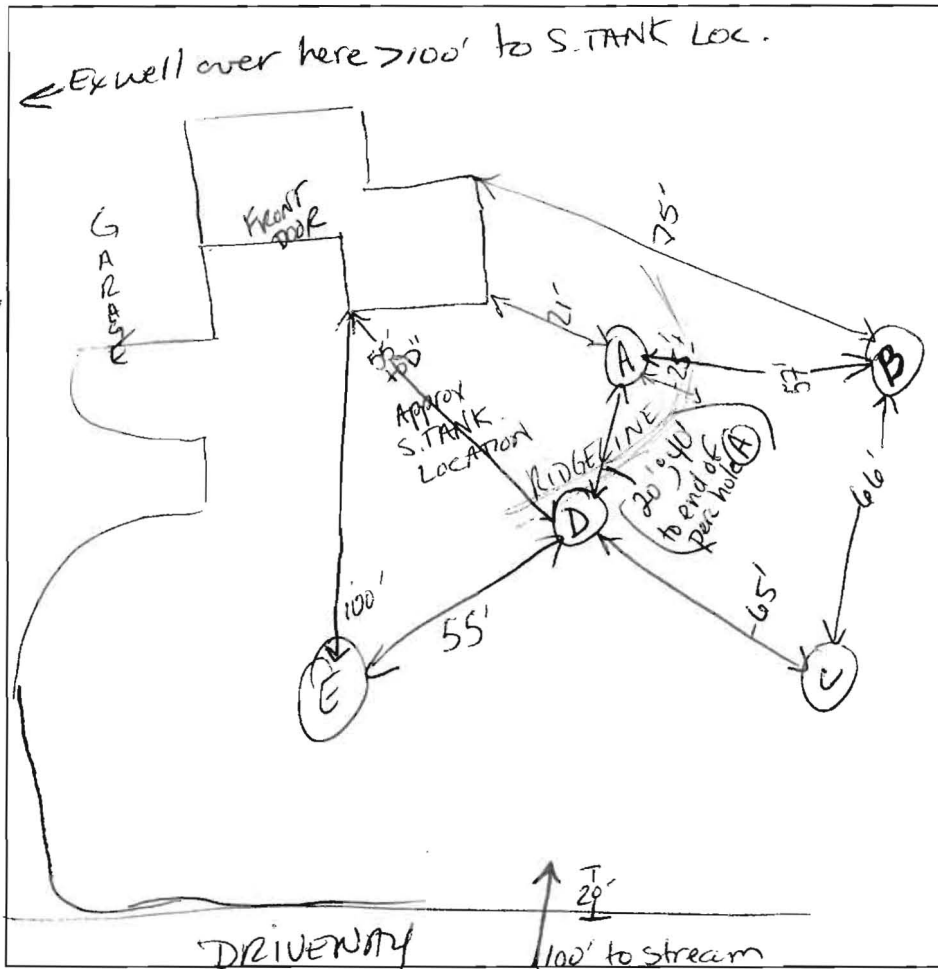 ← Ex well over here >100' to S. TANK LOC.
GARAGE
FRONT
DOOR
75'
21'
A
25'
57'
B
55'
Approx
S. TANK
LOCATION
RIDGELINE
20'; 40'
to end of
perc hole A
D
66'
100'
55'
65'
E
C
20'
DRIVEWAY
100' to stream